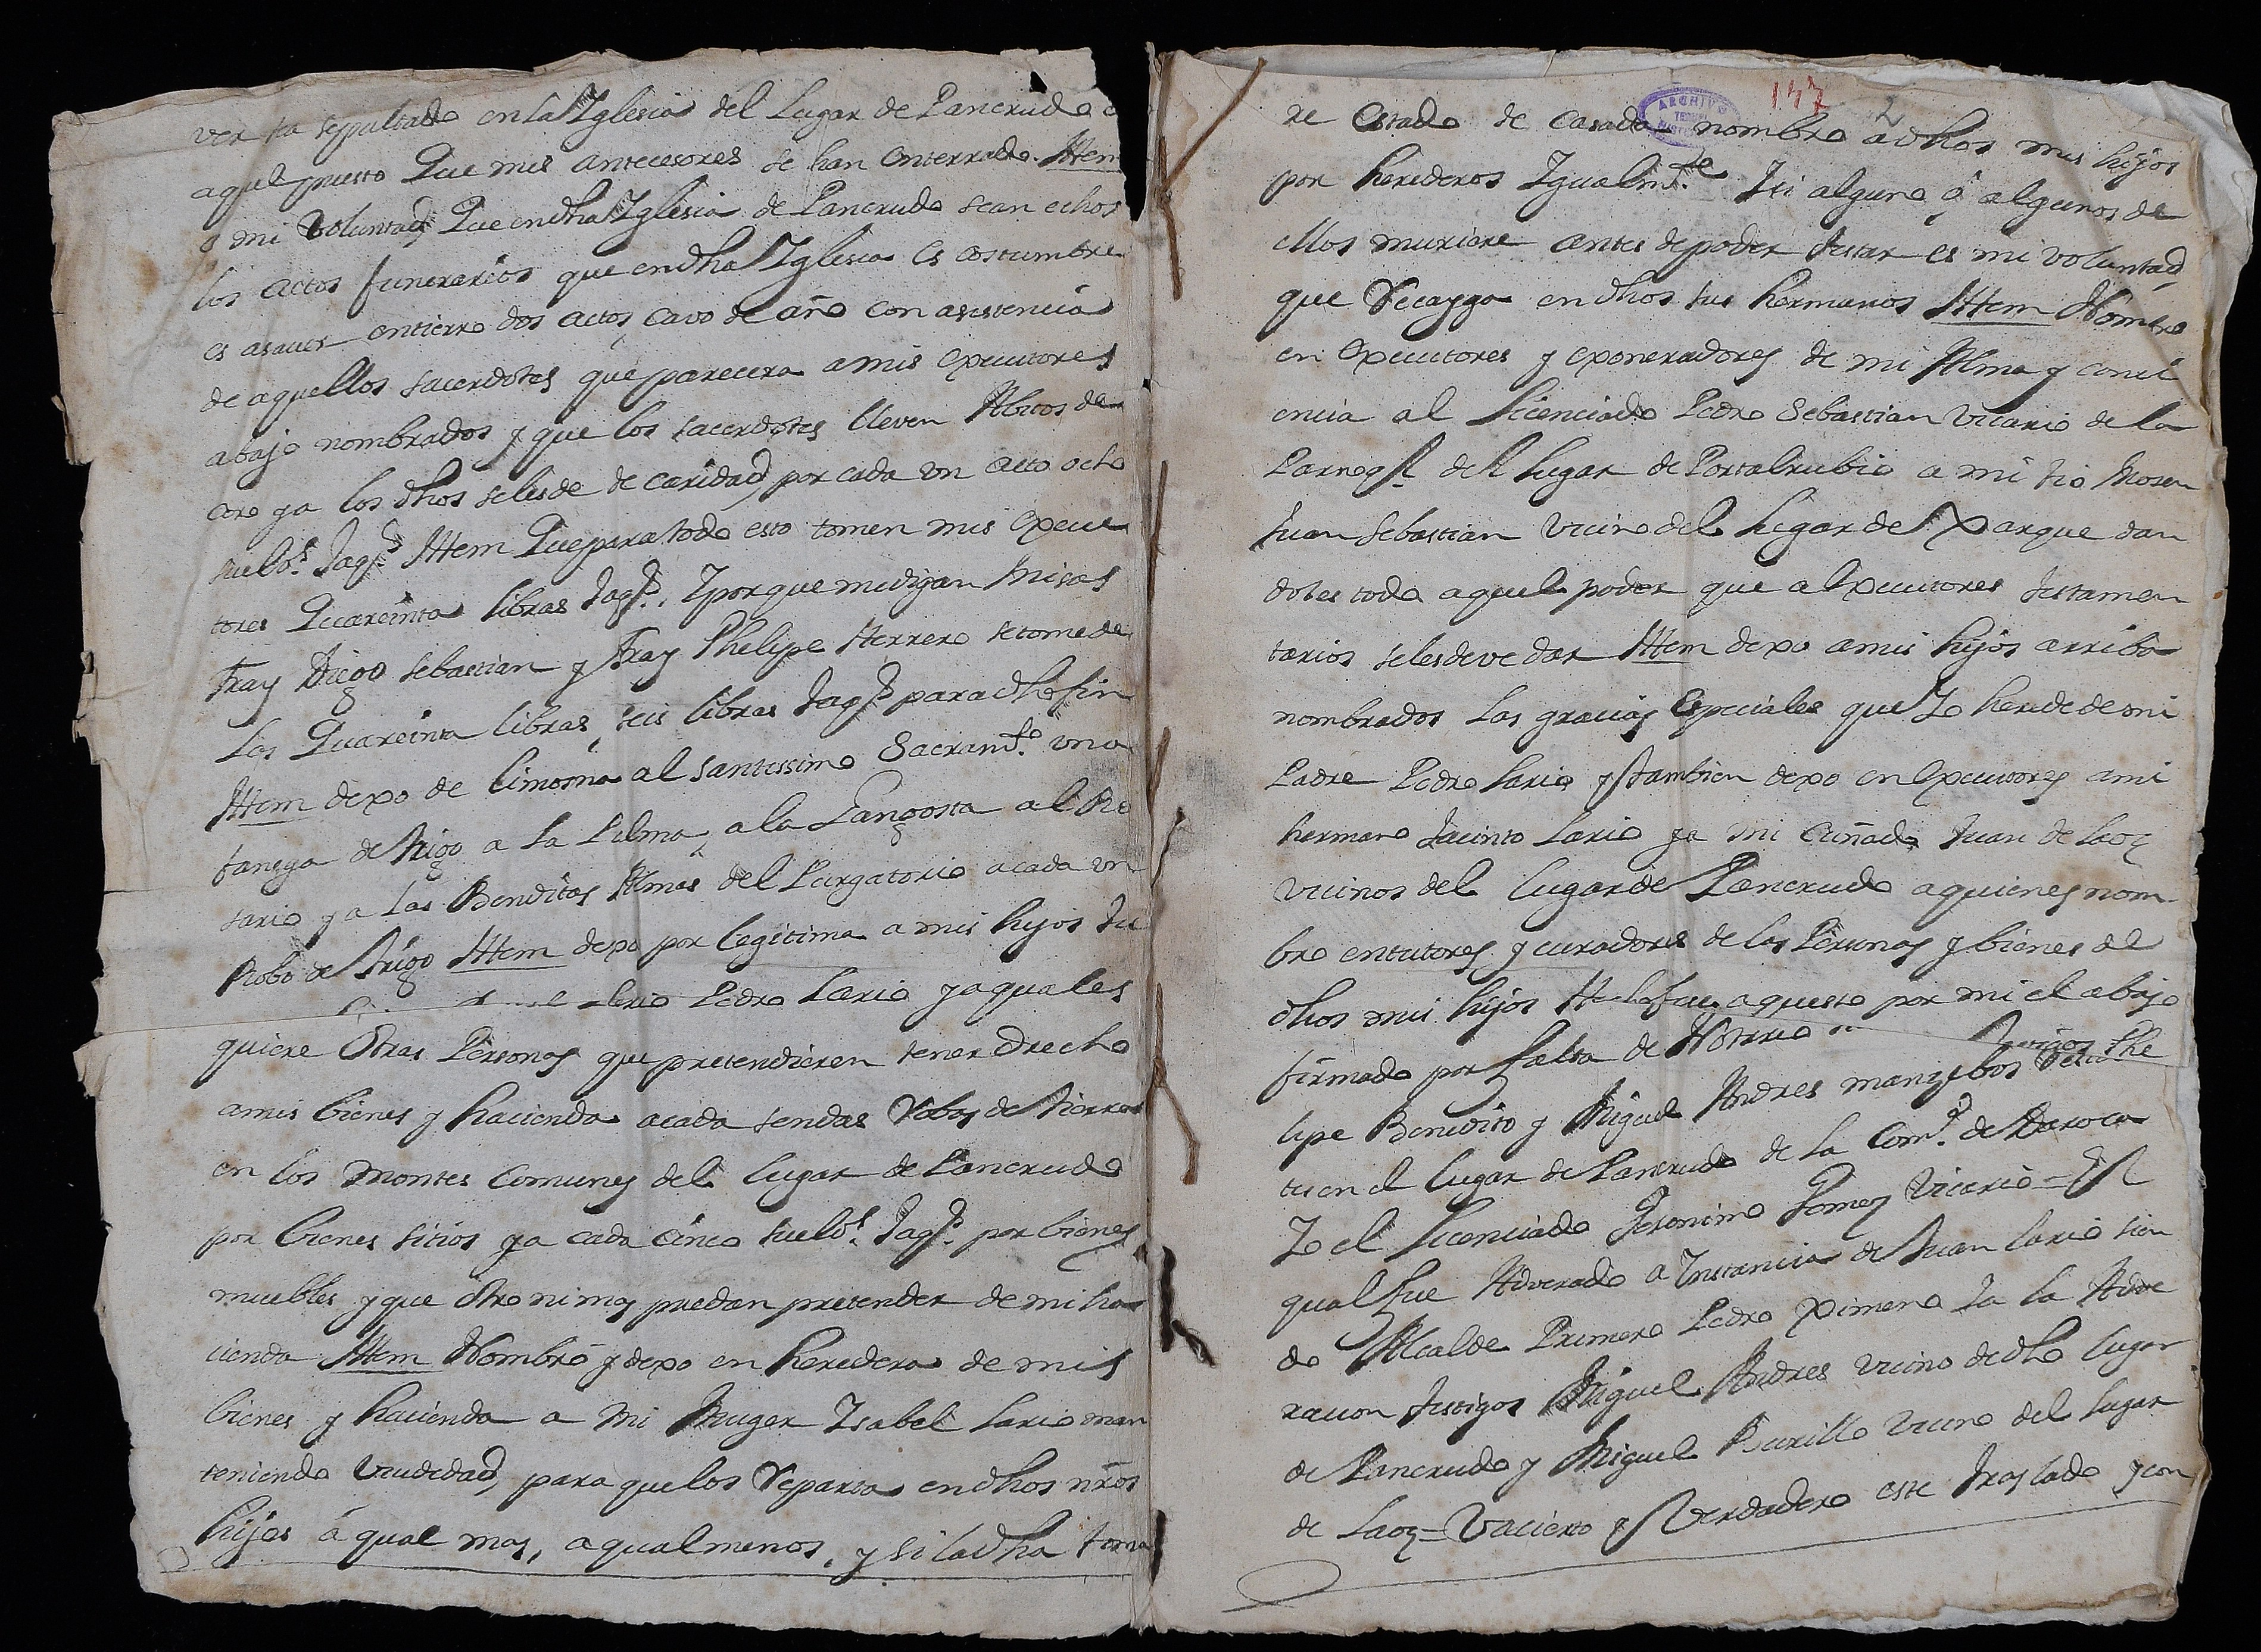 ver sea sepultado en la Iglesia del Lugar de Pancrudo
aquel puesto Que mis antecesores se han enterrado. Ittem
mi Voluntad Que en dha Iglesia de Pancrudo sean echos
los actos funerarios que en dha Iglesia es costumbre
es asaver entierro dos actos, cavo de año con asistencia
de aquellos sacerdotes que parecera a mis executores
abajo nombrados y que los sacerdotes lleven Abitos de
coro ya los dhos seles de de caridad por cada un acto ocho
sueldos Jaqs. Ittem Que para todo esto tomen mis execu
tores Quareinta libras Jaqs., Y porque me digan Misas
Fray Diego Sebastian y Fray Phelipe Herrero se tome de
Las Quareinta libras, seis libras Jaqs. para dho fin
Ittem dexo de limosna al santissimo Sacramto. una
fanega de trigo a la Lilma, a la Langosta al Ro
sario ya las Benditas Almas del Purgatorio a cada un
Robo de trigo Ittem dexo por legitima a mis hijos
Pedro Lario ya quales
quiere Otras Personas que pretendieren tener drecho
a mis bienes y hacienda a cada sendas Robas de tierra
en los Montes Comunes del Lugar de Pancrudo
por bienes sitios ya cada cinco sueldos. Jaqs. por bienes
muebles y que otro ni mas puedan pretender de mi ha
cienda Ittem Nombro y dexo en heredera de mis
bienes y hacienda a Mi Muger Isabel Lario man
teniendo Viudedad, para que los Reparta en dhos nros
hijos á qual mas, a qual menos, y si la dha toma
147 2
ARCHIVO
re estado de casada nombro a dhos mis hijos
por herederos Igualmte. y si alguno ó algunos de
ellos muriere antes de poder testar es mi voluntad
que Recayga en dhos sus hermanos Ittem Nombro
en executores y exoneradores de mi Alma y conci
encia al Licenciado Pedro Sebastian Vicario de la
Parroql. del lugar de Portalrubio a mi tio Mosen
Juan Sebastian Vicino del lugar de Xarque dan
doles todo aquel poder que a Executores testamen
tarios seles deve dar Ittem dexo a mis hijos arriba
nombrados las gracias especiales que Yo herede de mi
Padre Pedro Lario y tambien dexo en executores a mi
hermano Jacinto Lario ya mi cuñado Juan de Laoz
Vicinos del lugar de Pancrudo a quienes nom
bro en tutores y curadores de las Personas y bienes de
dhos mis hijos Hecho fue aquesto por mi el abajo
firmado por falta de Notario Testigos Phe
lipe Benedito y Miguel Andres manzebos
tes en el Lugar de Pancrudo de la Comd. de Daroca
Yo el Licenciado Jeronimo Gomez Vicario = El
qual fue Adverado a Instancia de Juan Lario sien
do Alcalde Primero Pedro Ximeno Ya la Adve
racion testigos Miguel Andres vicino de dho lugar
de Pancrudo y Miguel Burillo vicino del lugar
de Laoz = Va cierto y Verdadero este traslado y con